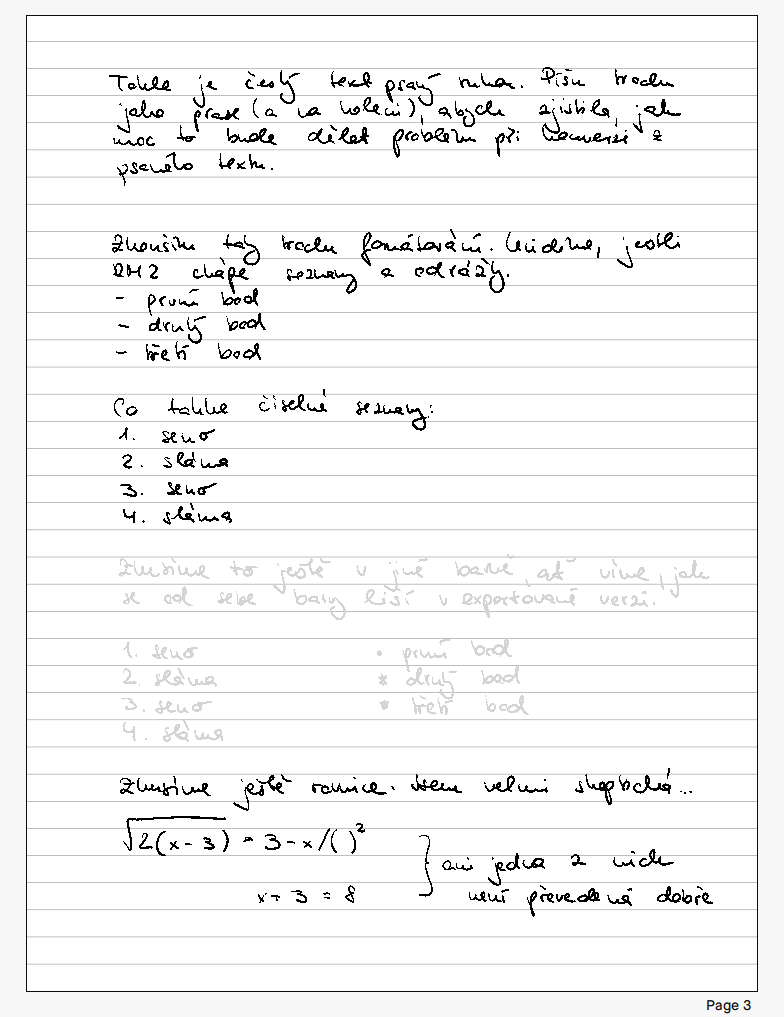 Tohle je český text pravou rukou. Píšu trochu
jako prase (a na koleni), abych zjistila, jak
moc to bude dělat problém při konverzi z
psaného textu.
Zkousím taky trochu formátování. Uvidíme, jestli
RM2 chápe seznamy a odrážky.
- první bod
- druhý bod
- třetí bod
Co takhle číselné seznamy:
1. seno
2. sláma
3. seno
4. sláma
Zkusíme to ještě v jiné barvě, ať víme, jak
se od sebe barvy liší v exportované verzi.
1. seno • první bod
2. sláma * druhý bod
3. seno * třetí bod
4. sláma
Zkusíme ještě rovnice. Jsem velmi skeptická...
√2(x-3) = 3-x/( )²
} ani jedna z nich
x + 3 = 8 není převedená dobře
Page 3